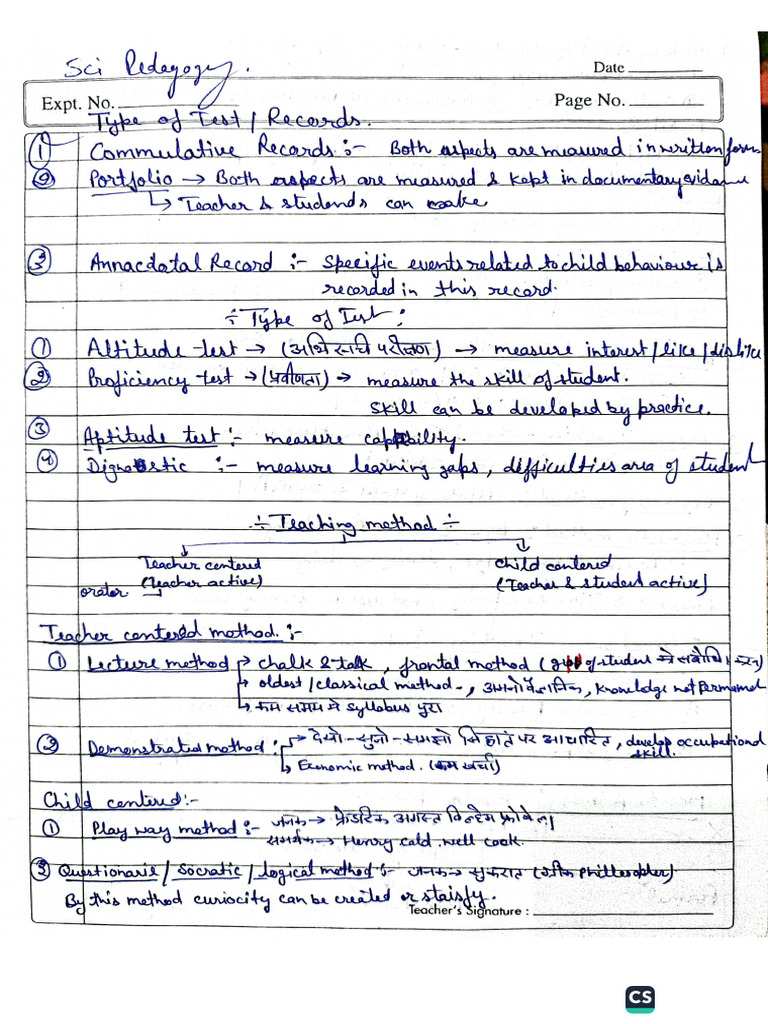 Sci Pedagogy.
Date
Expt. No.
Page No.
Type of Test/Records.
① Commulative Records :- Both aspects are measured in writion form
② Portfolio → Both aspects are measured & kept in documentary evidance
↳ Teacher & students can make
③ Annacdatal Record :- specific events related to child behaviour is
recorded in this record.
÷ Type of Test :
① Altitude test → (अभिरूचि परीक्षण) → measure interest/like/dislike
② Proficiency test → (प्रवीणता) → measure the skill of student.
skill can be developed by practice.
③ Aptitude test :- measure capability.
④ Dignostic :- measure learning gaps, difficulties area of student
÷ Teaching method ÷
Teacher centered
(Teacher active)
orater
child centered
(Teacher & student active)
Teacher centered method :-
① Lecture method → chalk & talk, frontal method ( of student को )
→ oldest/classical method -, अमनोवैज्ञानिक, knowledge not permanend
→ कम समय मे syllabus पुरा
② Demonstrated method : → देखो - सुनो - समझो सिद्धांत पर आधारित, develop occupational
skill.
↳ Economic method. (कम खर्ची)
Child centered :-
① Play way method :- जनक → फ्रेडरिक अगस्त विल्हेम फ्रोबेल।
समर्थक → Henry cald well cook.
② Questionarie / Socratic / logical method :- जनक → सुकरात ( Phillosopher)
By this method curiocity can be created or staisfy.
Teacher's Signature :
CS